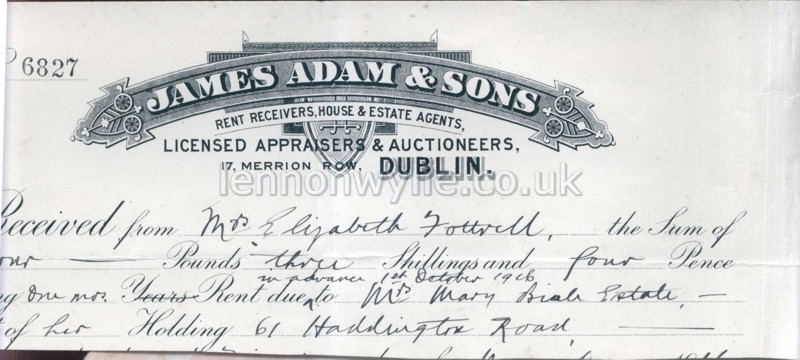 6827
JAMES ADAM & SONS
RENT RECEIVERS, HOUSE & ESTATE AGENTS,
LICENSED APPRAISERS & AUCTIONEERS,
17, MERRION ROW, DUBLIN.
lennonwylie.co.uk
Received from Mrs Elizabeth Fottrell, the Sum of
our — Pounds three Shillings and four Pence
in advance 1st October 1916
g One mo. Years Rent due to Mrs Mary Estate, —
t of her Holding 61 Haddington Road, —